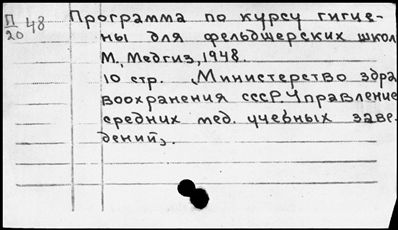 П/20 48 Программа по курсу гигие-
ны для фельдшерских школ
М., Медгиз, 1948.
10 стр. (Министерство здра
воохранения СССР. Управление
средних мед. учебных заве-
дений).